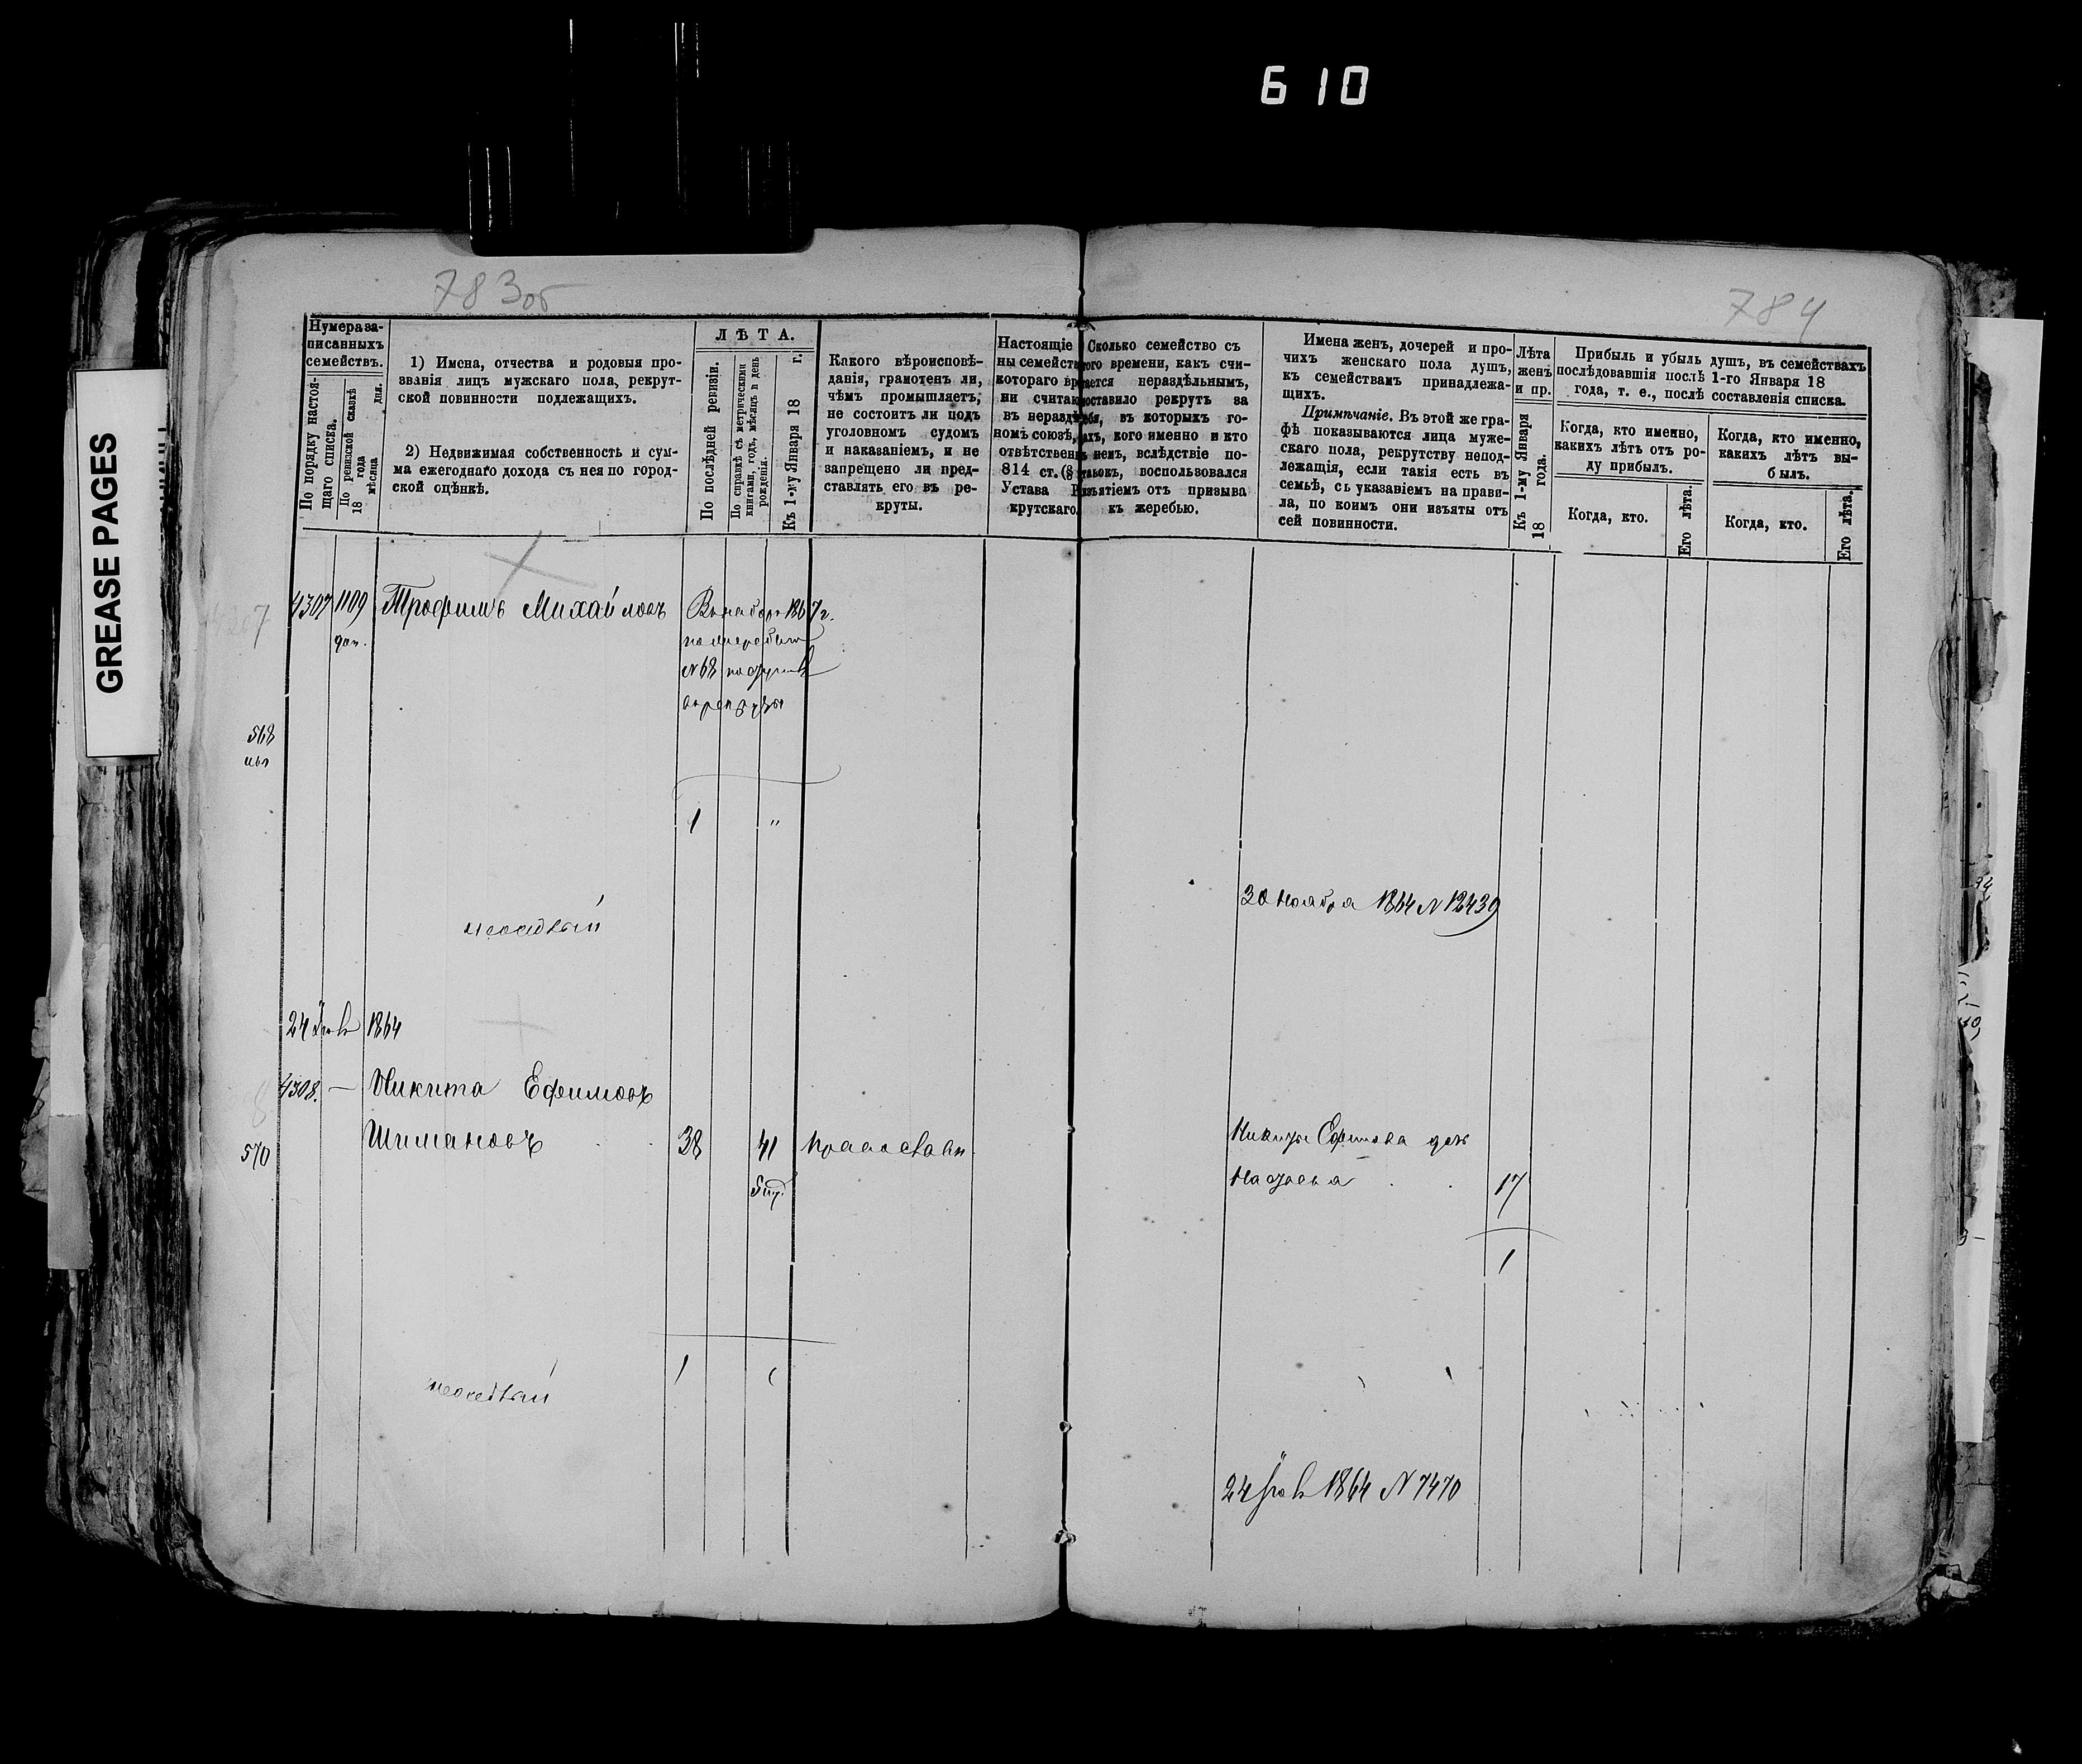 610
GREASE PAGES
783об
784
Нумера за-
писанныхъ
семействъ.
По порядку настоя-
щаго списка.
По ревизской сказкѣ
18 года
мѣсяца дня.
1) Имена, отчества и родовыя про-
званія лицъ мужскаго пола, рекрут-
ской повинности подлежащихъ.
2) Недвижимая собственность и сум-
ма ежегоднаго дохода съ нея по город-
ской оцѣнкѣ.
ЛѢТА.
По послѣдней ревизіи.
По справкѣ съ метрическими
книгами, годъ, мѣсяцъ и день
рожденія.
Къ 1-му Января 18 г.
Какого вѣроисповѣ-
данія, грамотенъ ли,
чѣмъ промышляетъ,
не состоитъ ли подъ
уголовномъ судомъ
и наказаніемъ, и не
запрещено ли пред-
ставлять его въ ре-
круты.
Настоящіе
ны семейств
котораго вр
ни считаю
въ неразд
номъ союзѣ,
отвѣтствен
814 ст. (§
Устава Р
крутскаго.
Сколько семейство съ
того времени, какъ счи-
тается нераздѣльнымъ,
поставило рекрутъ за
себя, въ которыхъ го-
дахъ, кого именно и кто
въ немъ, вслѣдствіе по-
ставокъ, воспользовался
изъятіемъ отъ призыва
къ жеребью.
Имена женъ, дочерей и про-
чихъ женскаго пола душъ,
къ семействамъ принадлежа-
щихъ.
Примѣчаніе. Въ этой же гра-
фѣ показываются лица муже-
скаго пола, рекрутству непод-
лежащія, если такія есть въ
семьѣ, съ указаніемъ на прави-
ла, по коимъ они изъяты отъ
сей повинности.
Лѣта
женъ
и пр.
Къ 1-му Января
18 года.
Прибыль и убыль душъ, въ семействахъ
послѣдовавшія послѣ 1-го Января 18
года, т. е., послѣ составленія списка.
Когда, кто именно,
какихъ лѣтъ отъ ро-
ду прибылъ.
Когда, кто именно,
какихъ лѣтъ вы-
былъ.
Когда, кто.
Его лѣта.
Когда, кто.
Его лѣта.
4307 1109 Трофимъ Михайловъ
доп.
1867 г.
№ 68
568
1 "
30 Ноября 1864 № 12439
24 1864
4308. — Никита Ефимовъ
570 Шимановъ 38 41 православн.
Никиты Ефимова дочь
Настасья 17
1
1 1
24 1864 № 7470